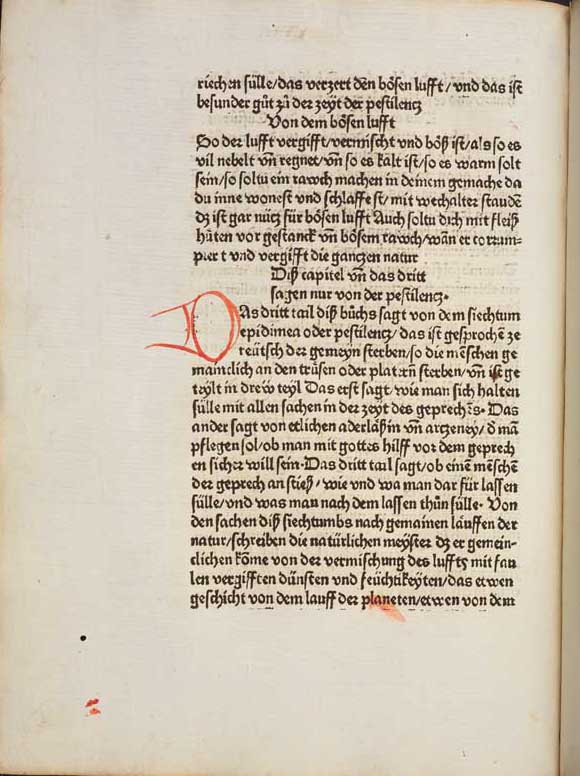 riechen sülle/das verzert den bösen lufft/vnd das ist
besunder gůt zů der zeyt der pestilencz
Von dem bösen lufft
So der lufft vergifft/vermischt vnd böß ist/als so es
vil nebelt vñ regnet/vñ so es kalt ist/so es warm solt
sein/so soltu ein rawch machen in deinem gemache da
du inne wonest vnd schlaffest/mit wechalter staudē
dz ist gar nücz für bösen lufft Auch soltu dich mit fleiß
hüten vor gestanck vñ bösem rawch/wañ er corrum-
piert vnd vergifft die ganczen natur
Diß capitel vñ das dritt
sagen nur von der pestilencz.
DAs dritt tail diß bůchs sagt von dem siechtum
epidimea oder pestilencz/das ist gesprochē ze
reütsch der gemeyn sterben/so die mēschen ge
mainclich an den trüsen oder platern sterben/vñ ist ge
teylt in drew teyl Das erst sagt/wie man sich halten
sülle mit allen sachen in der zeyt des geprechēs. Das
ander sagt von etlichen aderläßin vñ arczeney/d mā
pflegen sol/ob man mit gottes hilff vor dem geprech
en sicher will sein. Das dritt tail sagt/ob einē mēschē
der geprech an stieß/wie vnd wa man dar für lassen
sülle/vnd was man nach dem lassen thůn sülle. Von
den sachen diß siechtumbs nach gemainen läuffen der
natur/schreiben die natürlichen meyster dz er gemein-
clichen köme von der vermischung des luffts mit fau
len vergifften dünsten vnd feüchtikeyten/das etwen
geschicht von dem lauff der planeten/etwen von dem